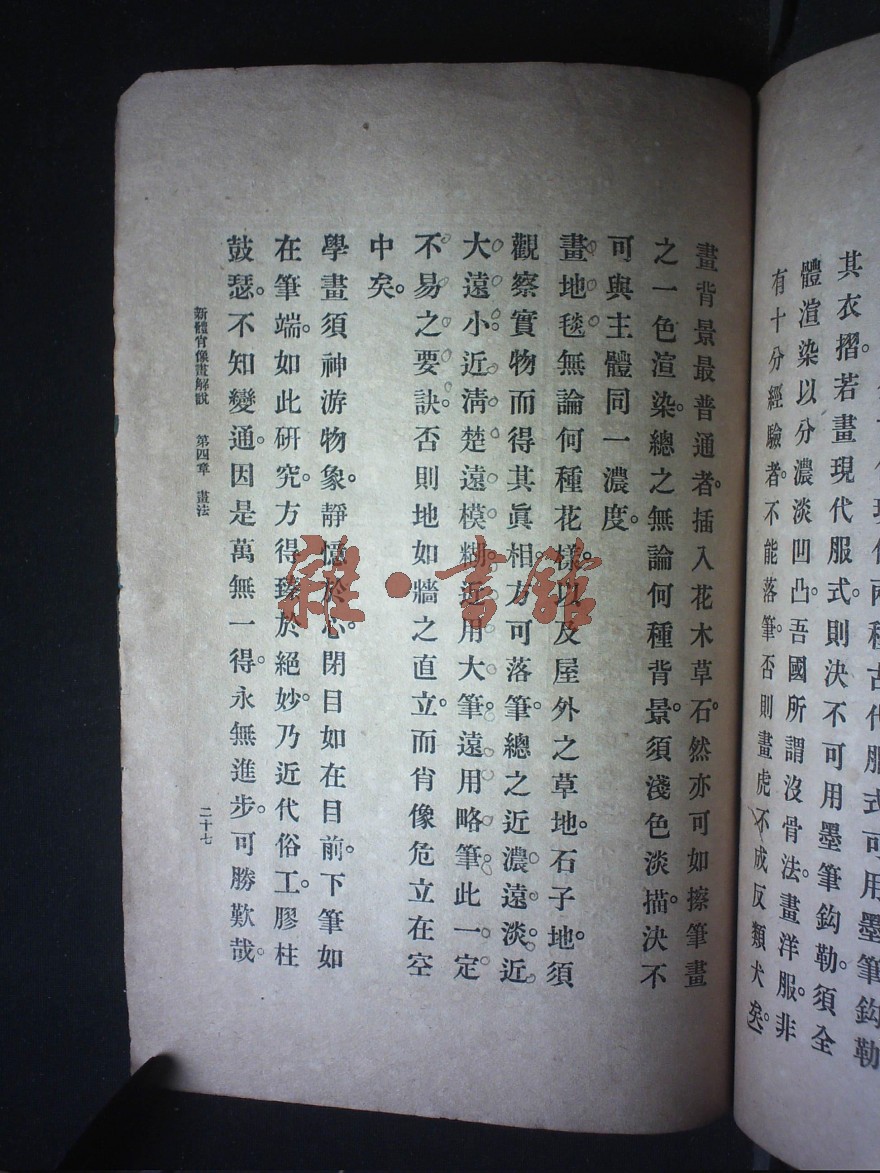 其衣摺。若畫現代服式。則決不可用墨筆鈎勒。須全
體渲染以分濃淡凹凸。吾國所謂沒骨法。畫洋服。非
有十分經驗者。不能落筆。否則畫虎不成反類犬矣。
畫背景最普通者。插入花木草石。然亦可如擦筆畫
之一色渲染。總之無論何種背景。須淺色淡描。決不
可與主體同一濃度。
畫地毯。無論何種花樣。以及屋外之草地。石子地。須
觀察實物而得其眞相。方可落筆。總之近濃遠淡。近
大遠小。近淸楚遠模糊。近用大筆。遠用略筆。此一定
不易之要訣。否則地如牆之直立。而肖像危立在空
中矣。
學畫須神游物象。靜憶於心。閉目如在目前。下筆如
在筆端。如此硏究。方得臻於絕妙。乃近代俗工。膠柱
鼓瑟。不知變通。因是萬無一得。永無進步。可勝歎哉。
新體肖像畫解說 第四章 畫法 二十七
雜·書館